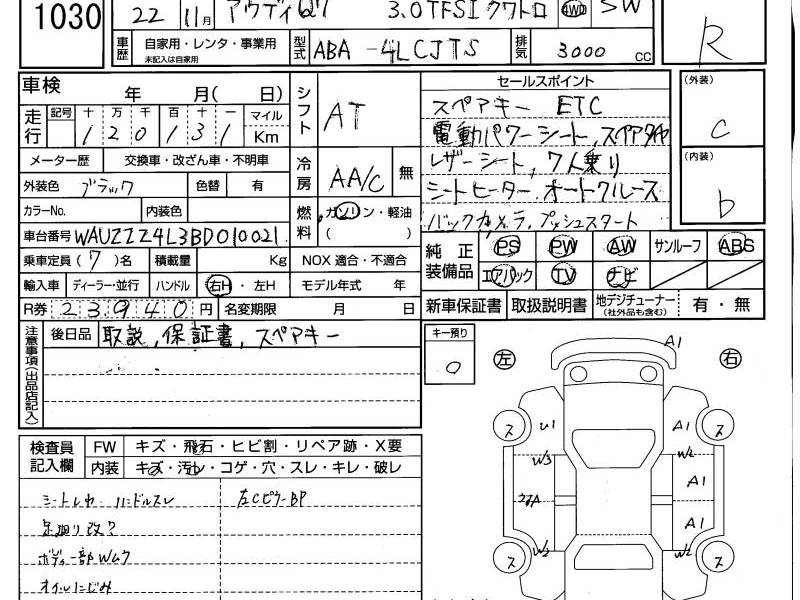 1030 22 11月 アウディQ7 3.0TFSIクワトロ 4WD SW
R
車歴 自家用・レンタ・事業用 未記入は自家用 型式 ABA-4LCJTS 排気 3000 cc
車検 年 月( 日) シフト AT
走行 記号 十 万 千 百 十 一 マイル Km
120131
メーター歴 交換車・改ざん車・不明車 冷房 AA/C 無
外装色 ブラック 色替 有
カラーNo. 内装色 燃料 ガソリン・軽油 ( )
車台番号 WAUZZZ4L3BD010021
乗車定員(7)名 積載量 Kg NOX 適合・不適合
輸入車 ディーラー・並行 ハンドル 右H・左H モデル年式 年
R券 23940円 名変期限 月 日
セールスポイント
スペアキー ETC
電動パワーシート,スペアタイヤ
レザーシート,7人乗り
シートヒーター,オートクルーズ
バックカメラ,プッシュスタート
(外装) C
(内装) b
純正装備品 PS PW AW サンルーフ ABS
エアバック TV ナビ
新車保証書 取扱説明書 地デジチューナー (社外品も含む) 有・無
注意事項(出品店記入) 後日品 取説,保証書,スペアキー
キー預り 0
左 右
A1
ス U1 A1 ス
W3 W2
A1
A1
ス W2 W2 ス
検査員記入欄 FW キズ・飛石・ヒビ割・リペア跡・X要
内装 キズ・汚レ・コゲ・穴・スレ・キレ・破レ
シートレカ ハンドルスレ 左CピラーBP
足廻り改?
ボディ一部Wムラ
オイルにじみ